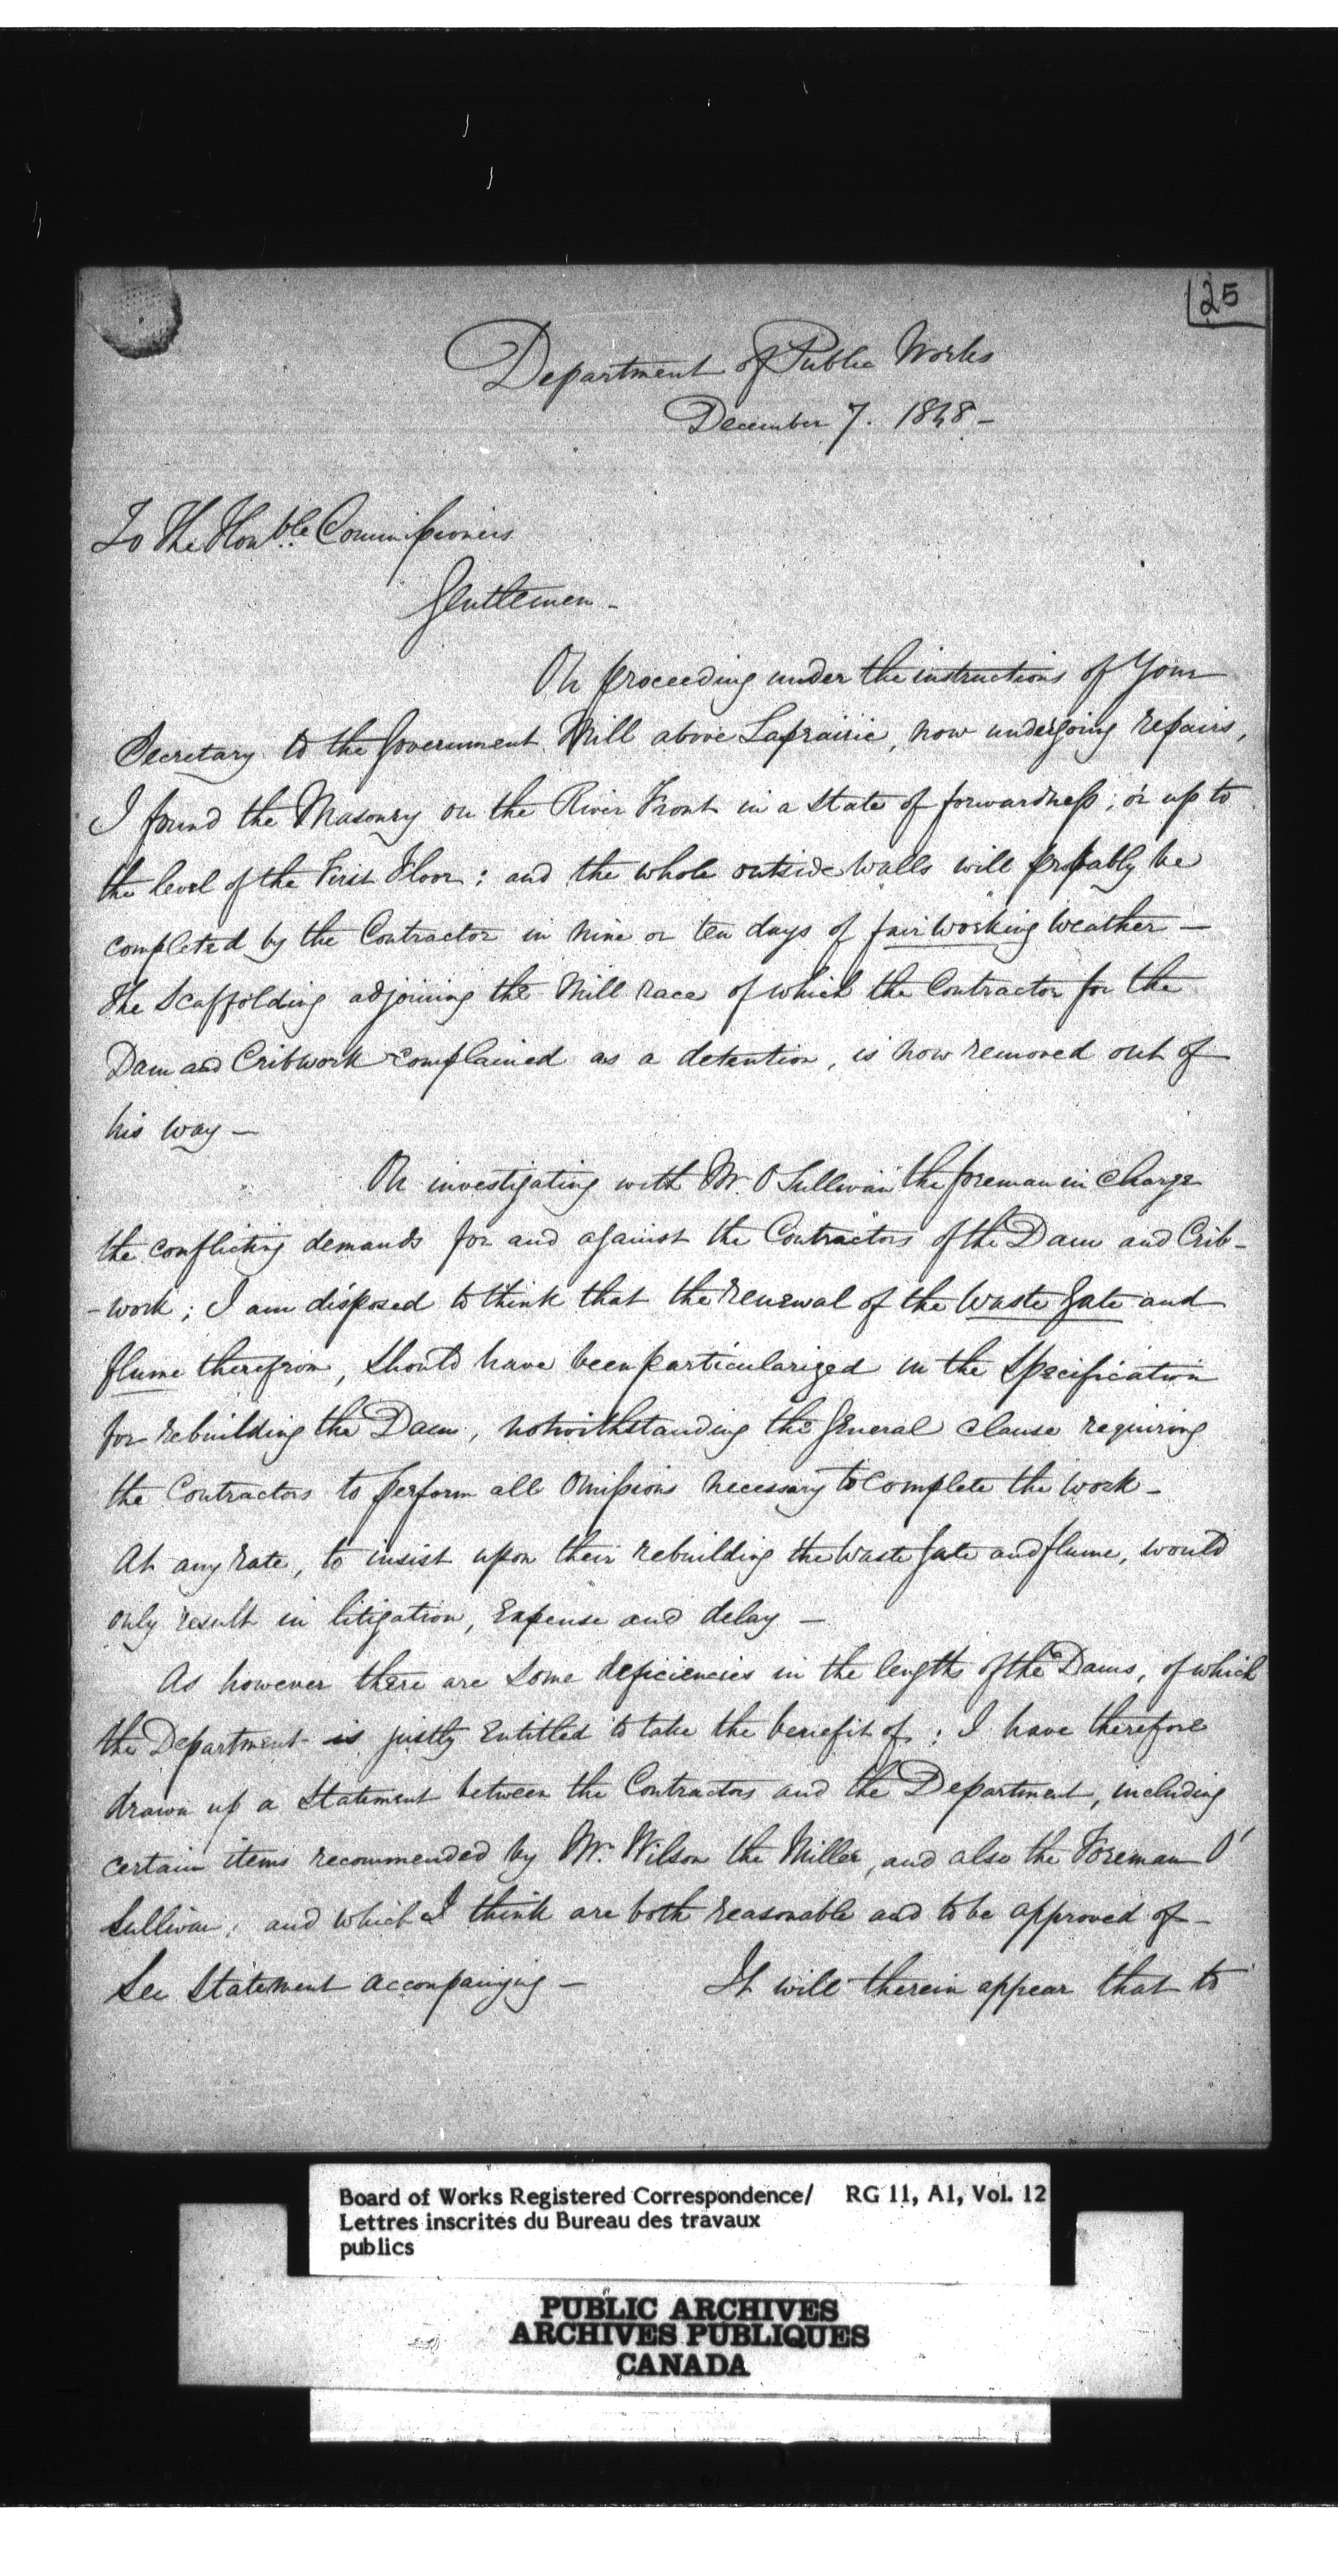 25
Department of Public Works
December 7. 1848 -
To The Honble Commissioners
Gentlemen -
On proceeding under the instructions of Your
Secretary to the Government Mill above Laprairie, now undergoing repairs,
I found the Masonry on the River Front in a state of forwardness; or up to
the level of the First Floor: and the whole outside walls will probably be
completed by the Contractor in nine or ten days of fair working weather -
The Scaffolding adjoining the Mill race of which the Contractor for the
Dam and Cribwork complained as a detention, is now removed out of
his way -
On investigating with Mr. O'Sullivan the foreman in charge
the conflicting demands for and against the Contractors of the Dam and Crib-
-work; I am disposed to think that the renewal of the Waste Gate and
flume therefrom, should have been particularized in the Specification
for rebuilding the Dam, notwithstanding the general clause requiring
the Contractors to perform all Omissions necessary to complete the work -
At any rate, to insist upon their rebuilding the Waste Gate and flume, would
only result in litigation, Expense and delay -
As however there are some deficiencies in the length of the Dams, of which
the Department is justly Entitled to take the benefit of; I have therefore
drawn up a Statement between the Contractors and the Department, including
certain items recommended by Mr. Wilson the Miller, and also the Foreman O'
Sullivan; and which I think are both reasonable and to be approved of -
See Statement accompanying - It will therein appear that to
Board of Works Registered Correspondence/ RG 11, A1, Vol. 12
Lettres inscrites du Bureau des travaux
publics
PUBLIC ARCHIVES
ARCHIVES PUBLIQUES
CANADA